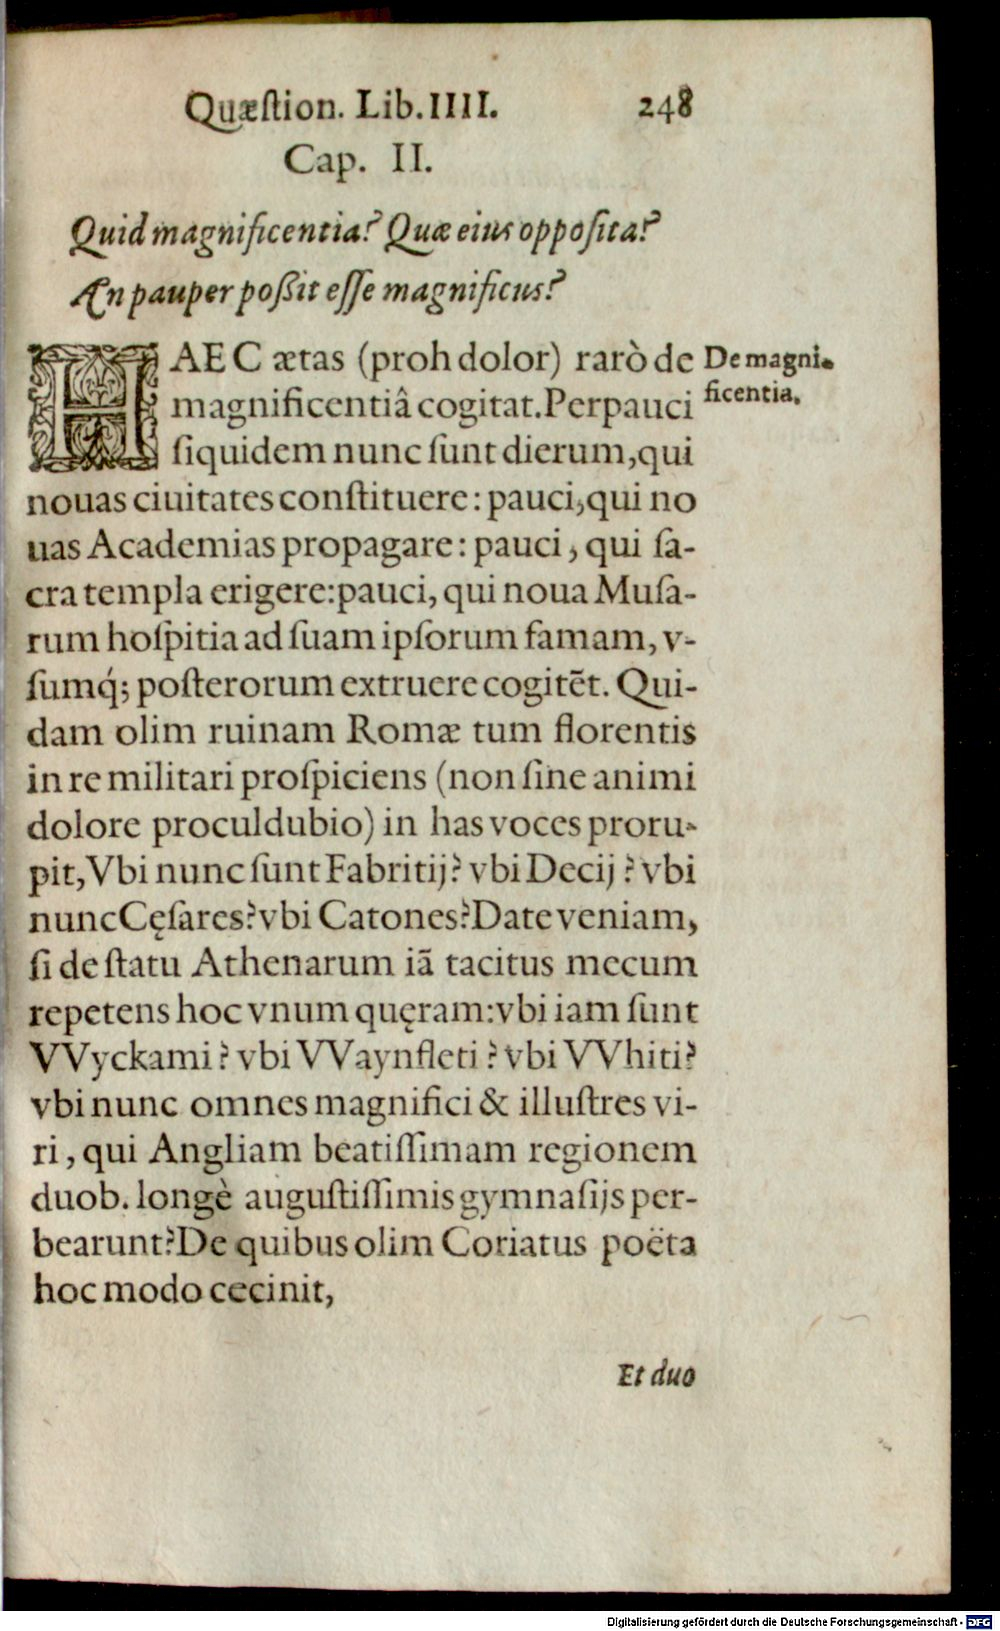 Quæſtion. Lib. IIII. 248
Cap. II.
Quid magnificentia? Quæ eius oppoſita?
Æn pauper poßit eſſe magnificus?
HAEC ætas (proh dolor) rarò de
magnificentiâ cogitat. Perpauci
ſiquidem nunc ſunt dierum, qui
nouas ciuitates conſtituere: pauci, qui no
uas Academias propagare: pauci, qui ſa-
cra templa erigere: pauci, qui noua Muſa-
rum hoſpitia ad ſuam ipſorum famam, v-
ſumq́; poſterorum extruere cogitẽt. Qui-
dam olim ruinam Romæ tum florentis
in re militari proſpiciens (non ſine animi
dolore proculdubio) in has voces proru-
pit, Vbi nunc ſunt Fabritij? vbi Decij? vbi
nunc Cęſares? vbi Catones? Date veniam,
ſi de ſtatu Athenarum iã tacitus mecum
repetens hoc vnum quęram: vbi iam ſunt
VVyckami? vbi VVaynfleti? vbi VVhiti?
vbi nunc omnes magnifici & illuſtres vi-
ri, qui Angliam beatiſſimam regionem
duob. longè auguſtiſſimis gymnaſijs per-
bearunt? De quibus olim Coriatus poëta
hoc modo cecinit,
Et duo
De magni.
ficentia.
Digitalisierung gefördert durch die Deutsche Forschungsgemeinschaft - DFG